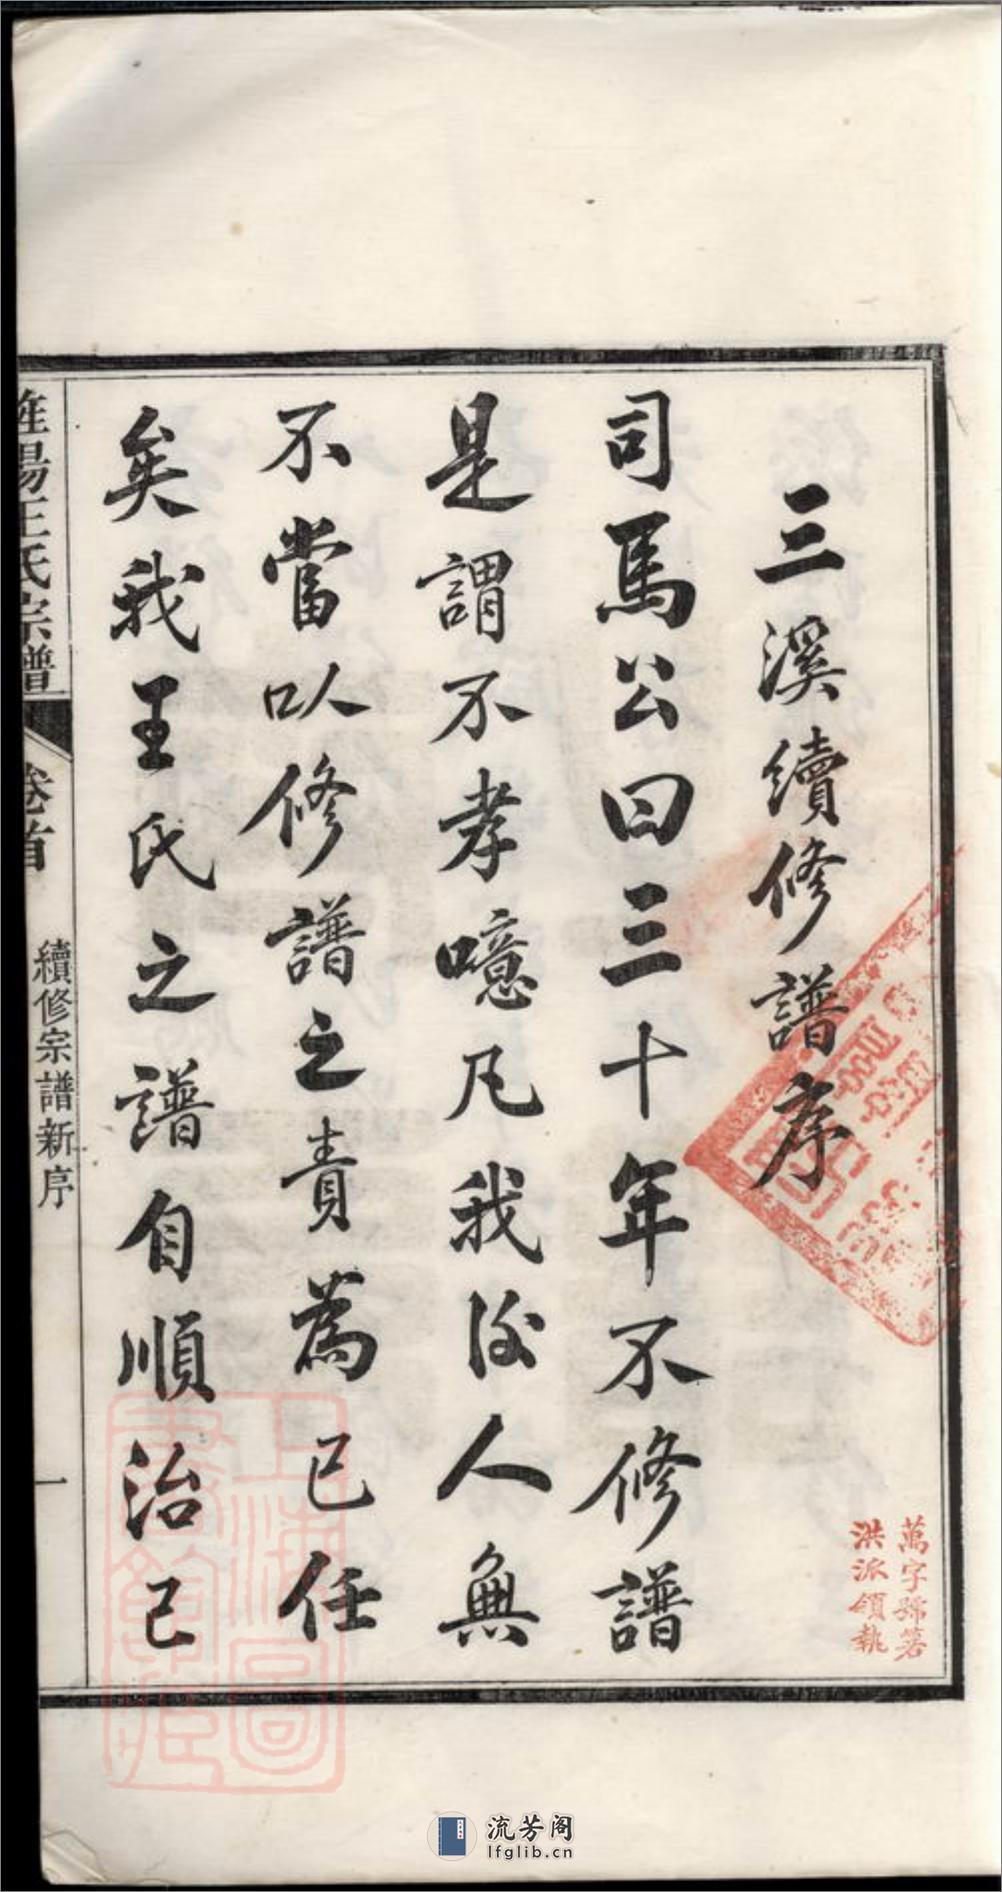 三溪續修譜序
司馬公曰三十年不修譜
是謂不孝噫凡我後人無
不當以修譜之責為己任
矣我王氏之譜自順治己
旌陽王氏宗譜
卷首
續修宗譜新序
一
萬字號第
洪派領執
上海圖書館藏
流芳阁
lfglib.cn